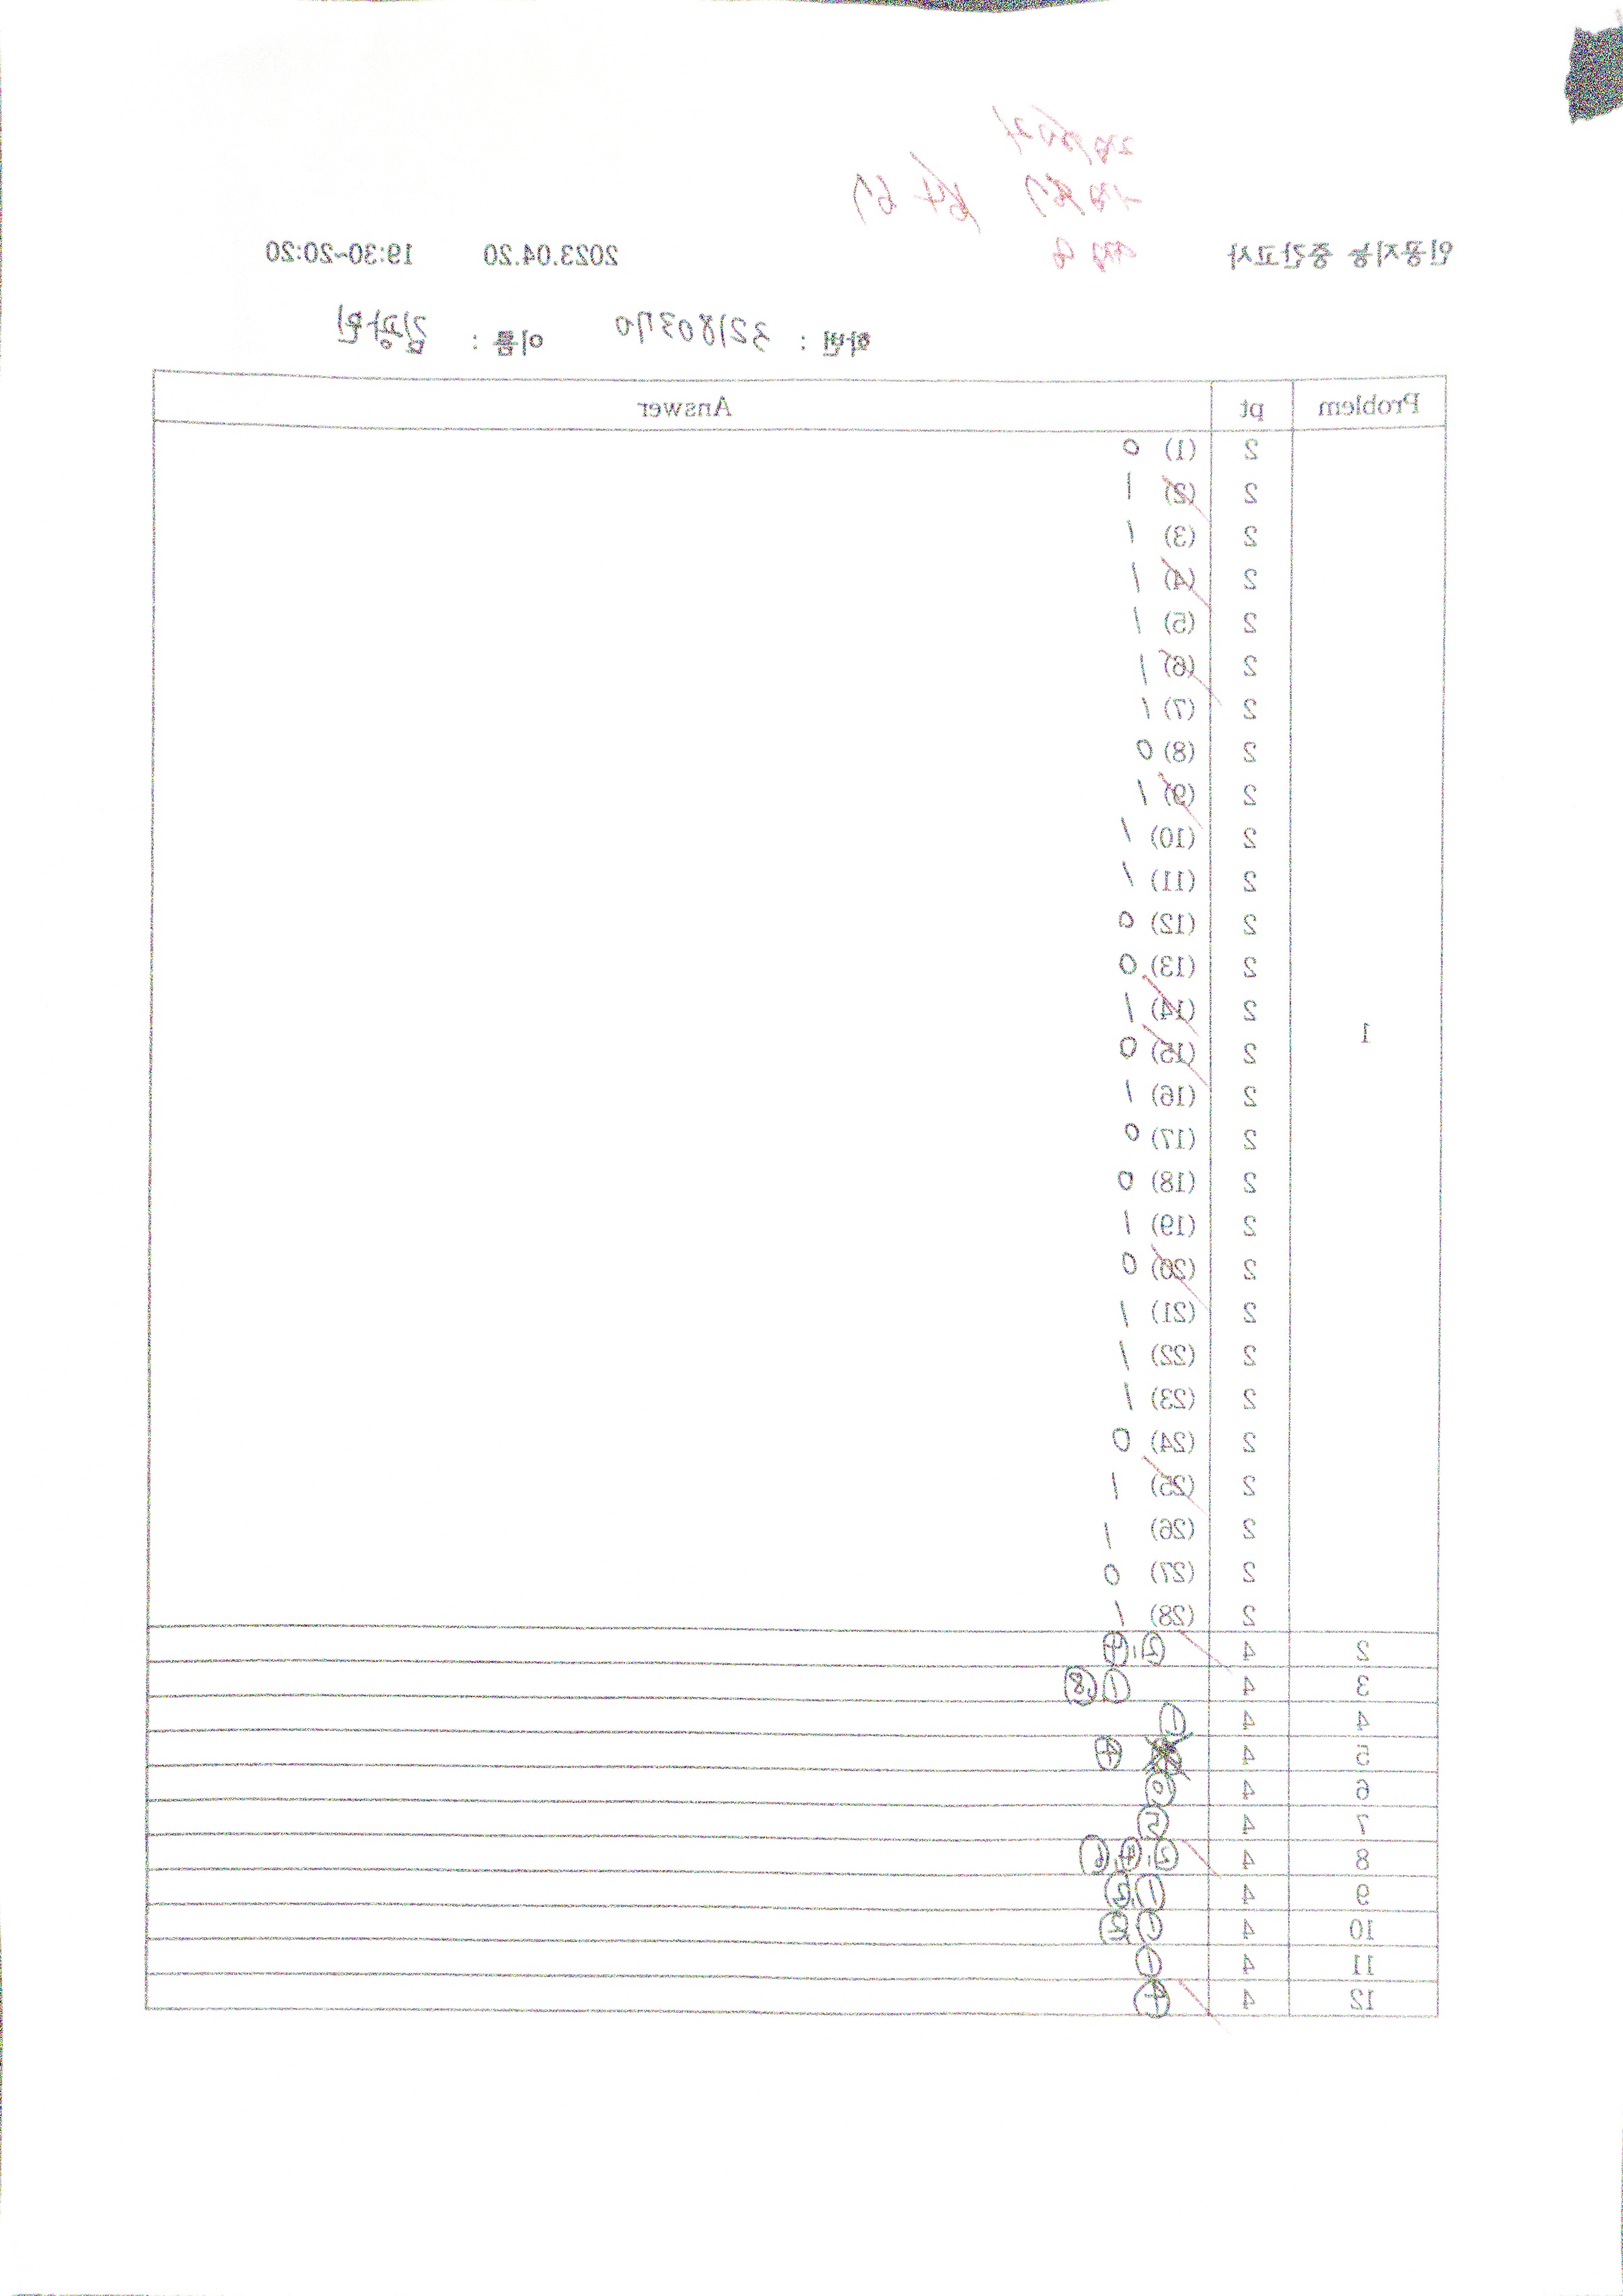 인공지능 중간고사 2023.04.20 19:30~20:20
학번 : 32180370 이름 :
Problem pt Answer
1
2 (1) 0
2 (2) 1
2 (3) 1
2 (4) 1
2 (5) 1
2 (6) 1
2 (7) 1
2 (8) 0
2 (9) 1
2 (10) 1
2 (11) 1
2 (12) 0
2 (13) 0
2 (14) 1
2 (15) 0
2 (16) 1
2 (17) 0
2 (18) 0
2 (19) 1
2 (20) 0
2 (21) 1
2 (22) 1
2 (23) 1
2 (24) 0
2 (25) 1
2 (26) 1
2 (27) 0
2 (28) 1
2 4 ②,④
3 4 ①,⑧
4 4 ①
5 4 ④
6 4
7 4 ⑤
8 4 ②,④,⑥
9 4 ①,②
10 4 ①,②
11 4 ①
12 4 ④